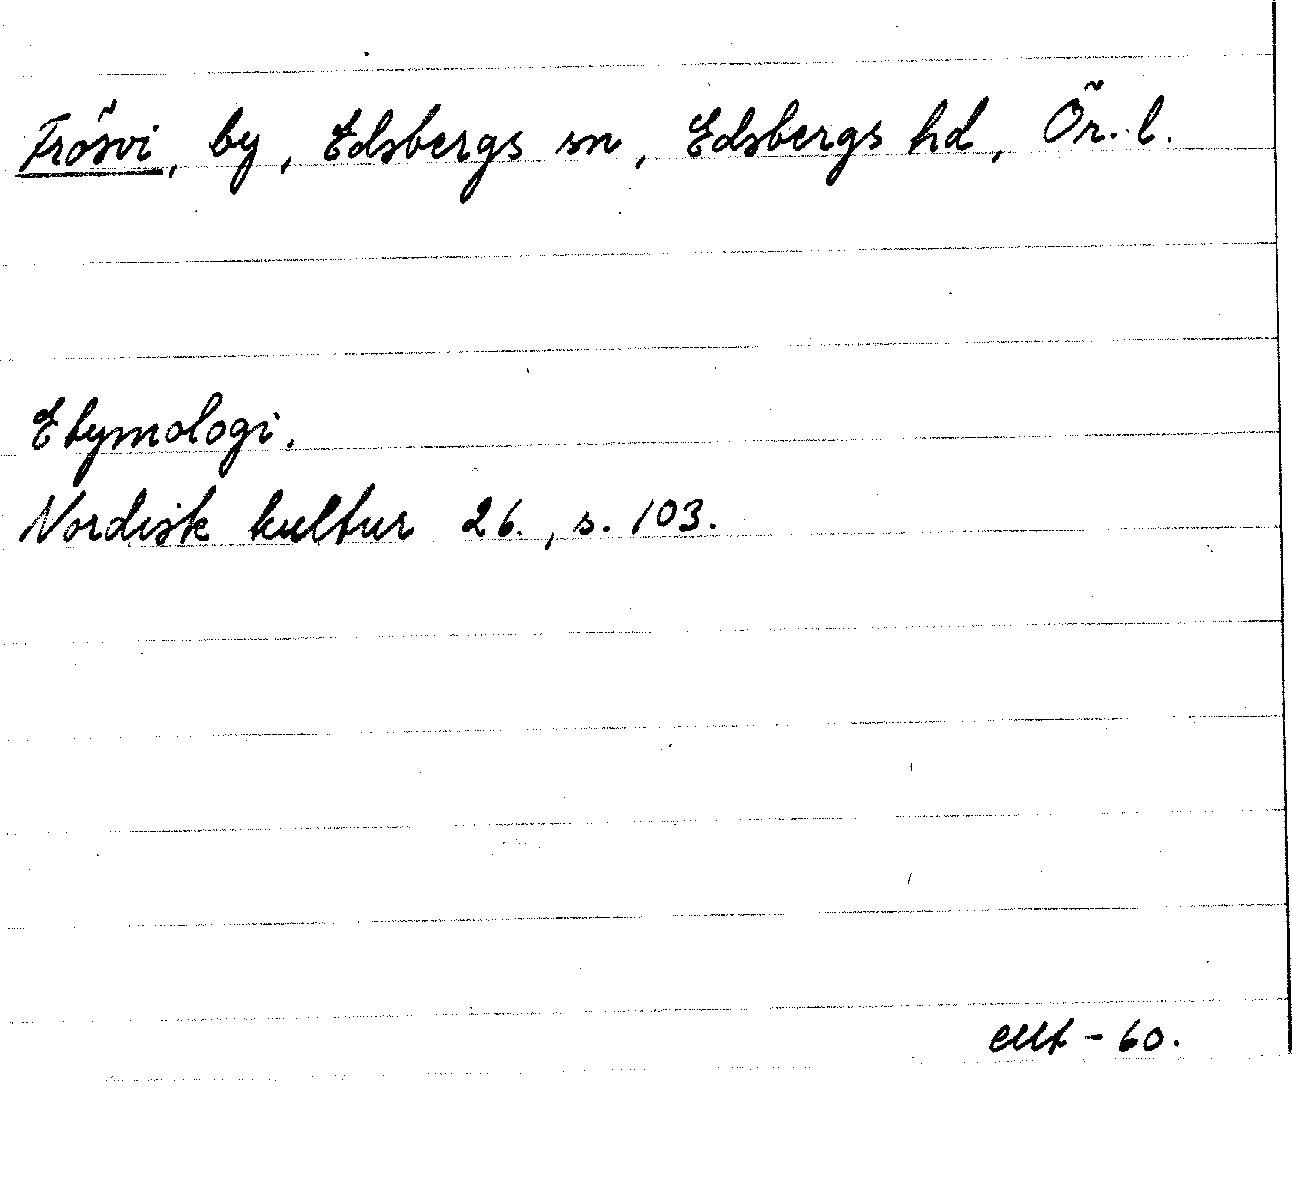 Frösvi, by, Edsbergs sn, Edsbergs hd, Ör. l.
Etymologi.
Nordisk kultur 26., s. 103.
- 60.